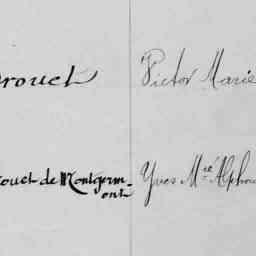 rouet Victor Marie
ouet de Montgerm-
ont Yves Mie Alphon